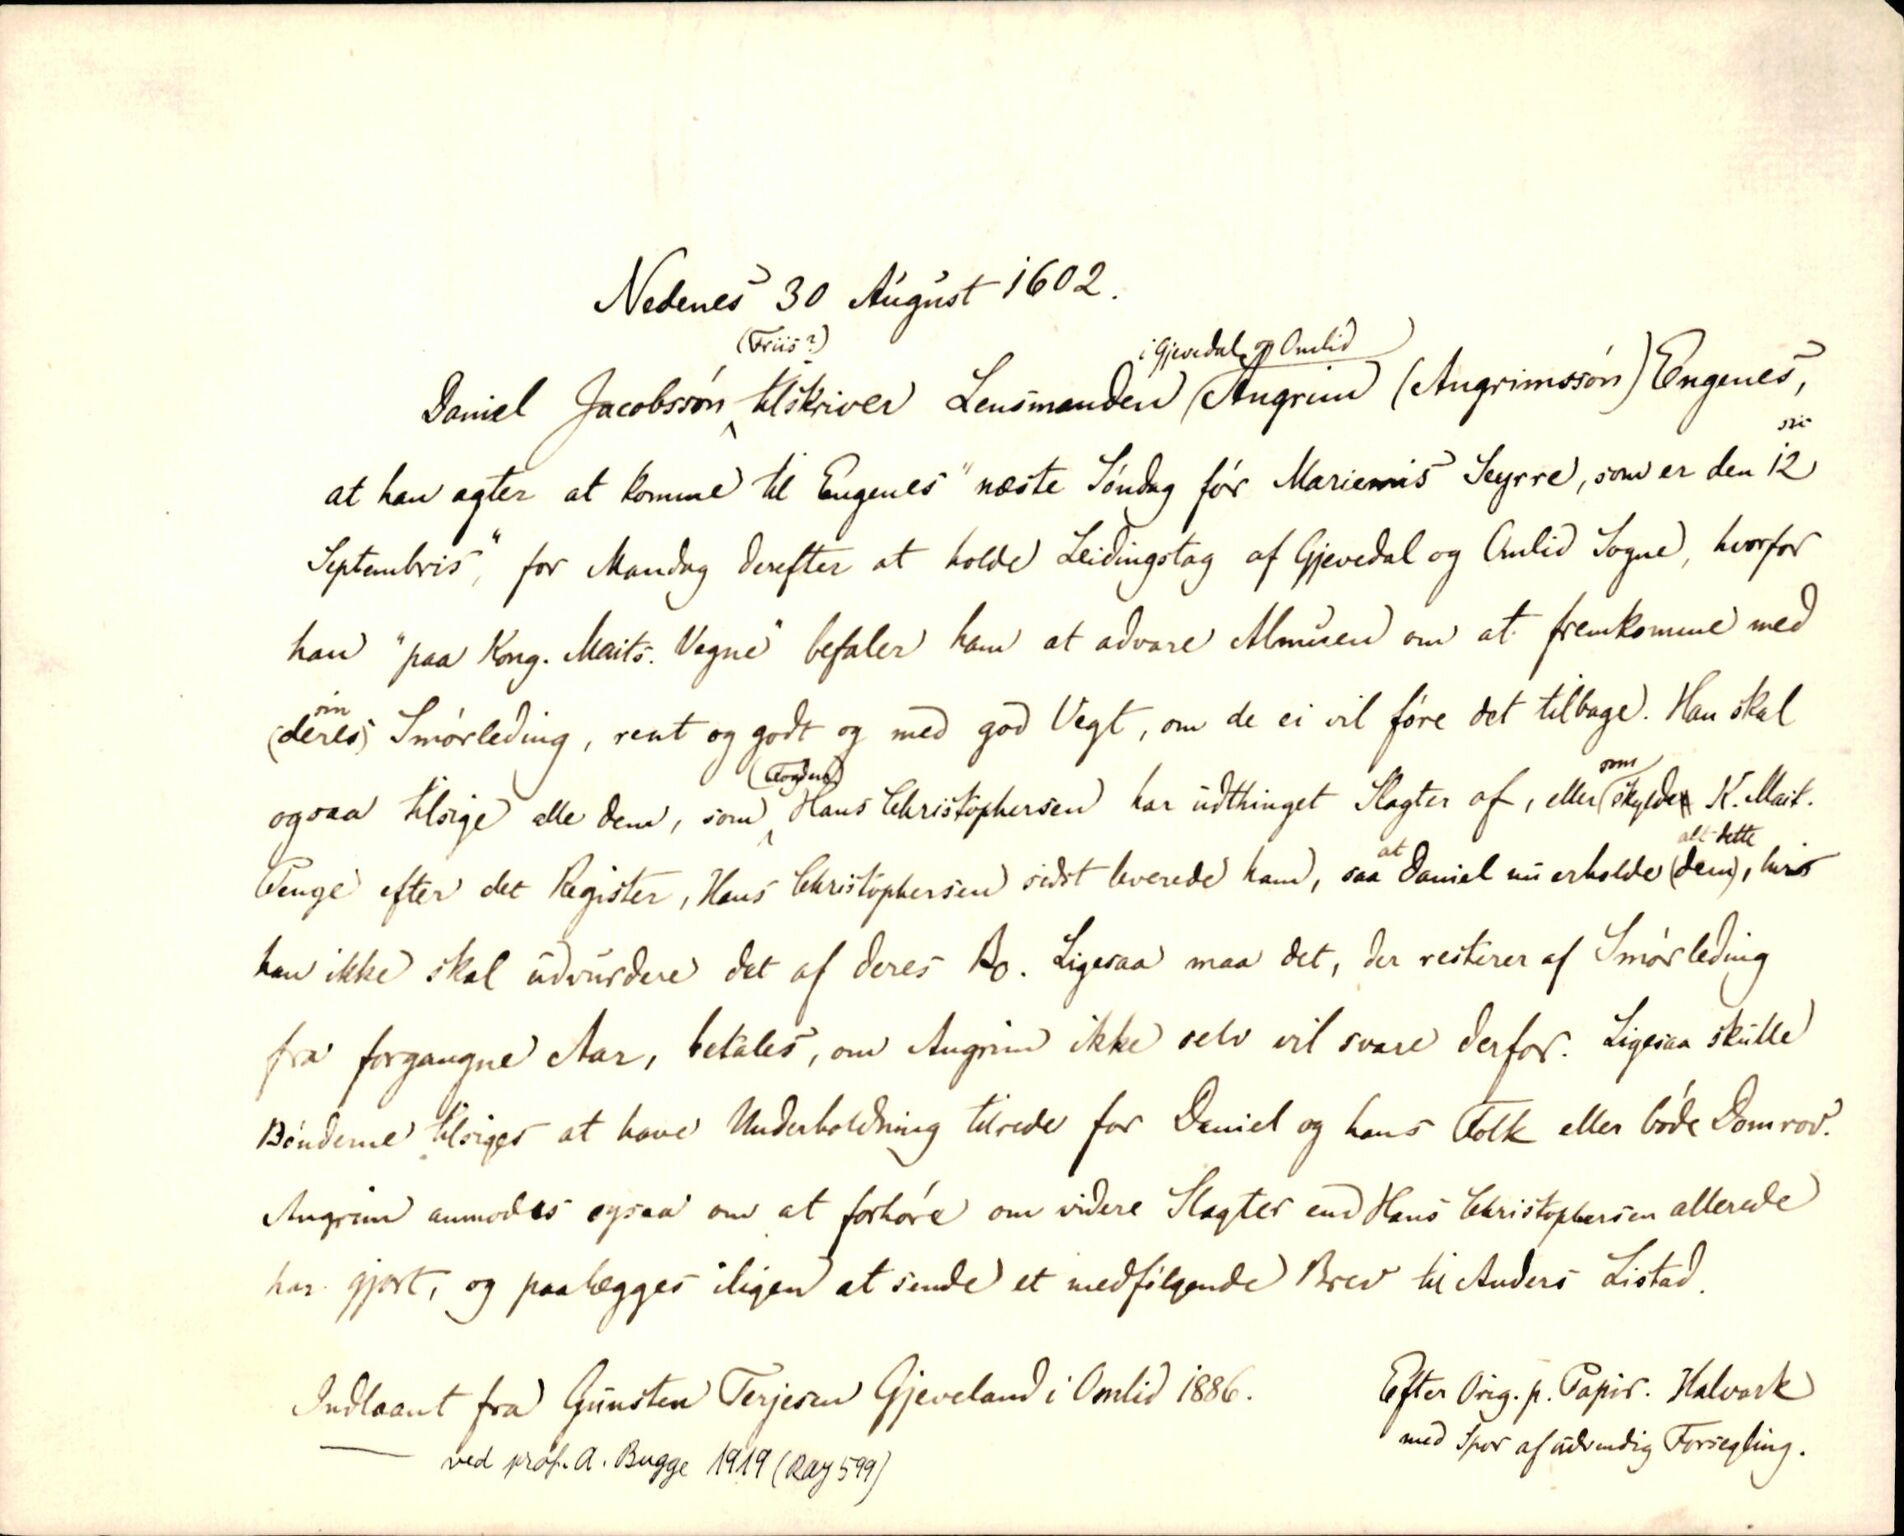 Nedenes 30 August 1602.
(Friis?)
i Gjevedal og Omlid)
Daniel Jacobssón tilskriver Lensmanden (Augrim (Augrimssón) Engenes,
sic
at han agter at komme til Engenes "næste Sóndag fór Mariemis Seyrre, som er den 12
Septembris", for Mandag derefter at holde Leidingstag af Gjevedal og Omlid Sogne, hvorfor
han "paa Kong. Maits. Vegne" befaler ham at advare Almuen om at fremkomme med
sin
(deres) Smórleding, rent og godt og med god Vegt, om de ei vil fóre det tilbage. Han skal
(Fogden)
som
ogsaa tilsige alle dem, som Hans Christophersen har udthinget Slagter af, eller (skylder K. Mait.
at
alt dette
Penge efter det Register, Hans Christophersen sidst leverede ham, saa Daniel nu erholde (dem), hvis
han ikke skal udvurdere det af deres Bo. Ligesaa maa det, der resterer af Smórleding
fra forgangne Aar, betales, om Augrim ikke selv vil svare derfor. Ligesaa skulle
Bónderne tilsiges at have Underholdning tilrede for Daniel og hans Folk eller bóde Domrov.
Augrim anmodes ogsaa om at forhóre om videre Slagter end Hans Christophersen allerede
har gjort, og paalægges iligen at sende et medfólgende Brev til Anders Listad.
Indlaant fra Gunsten Terjesen Gjeveland i Omlid 1886.
ved prof. A. Bugge 1919 (Ray 599)
Efter Orig. p. Papir. Halvark
med Spor af udvendig Forsegling.